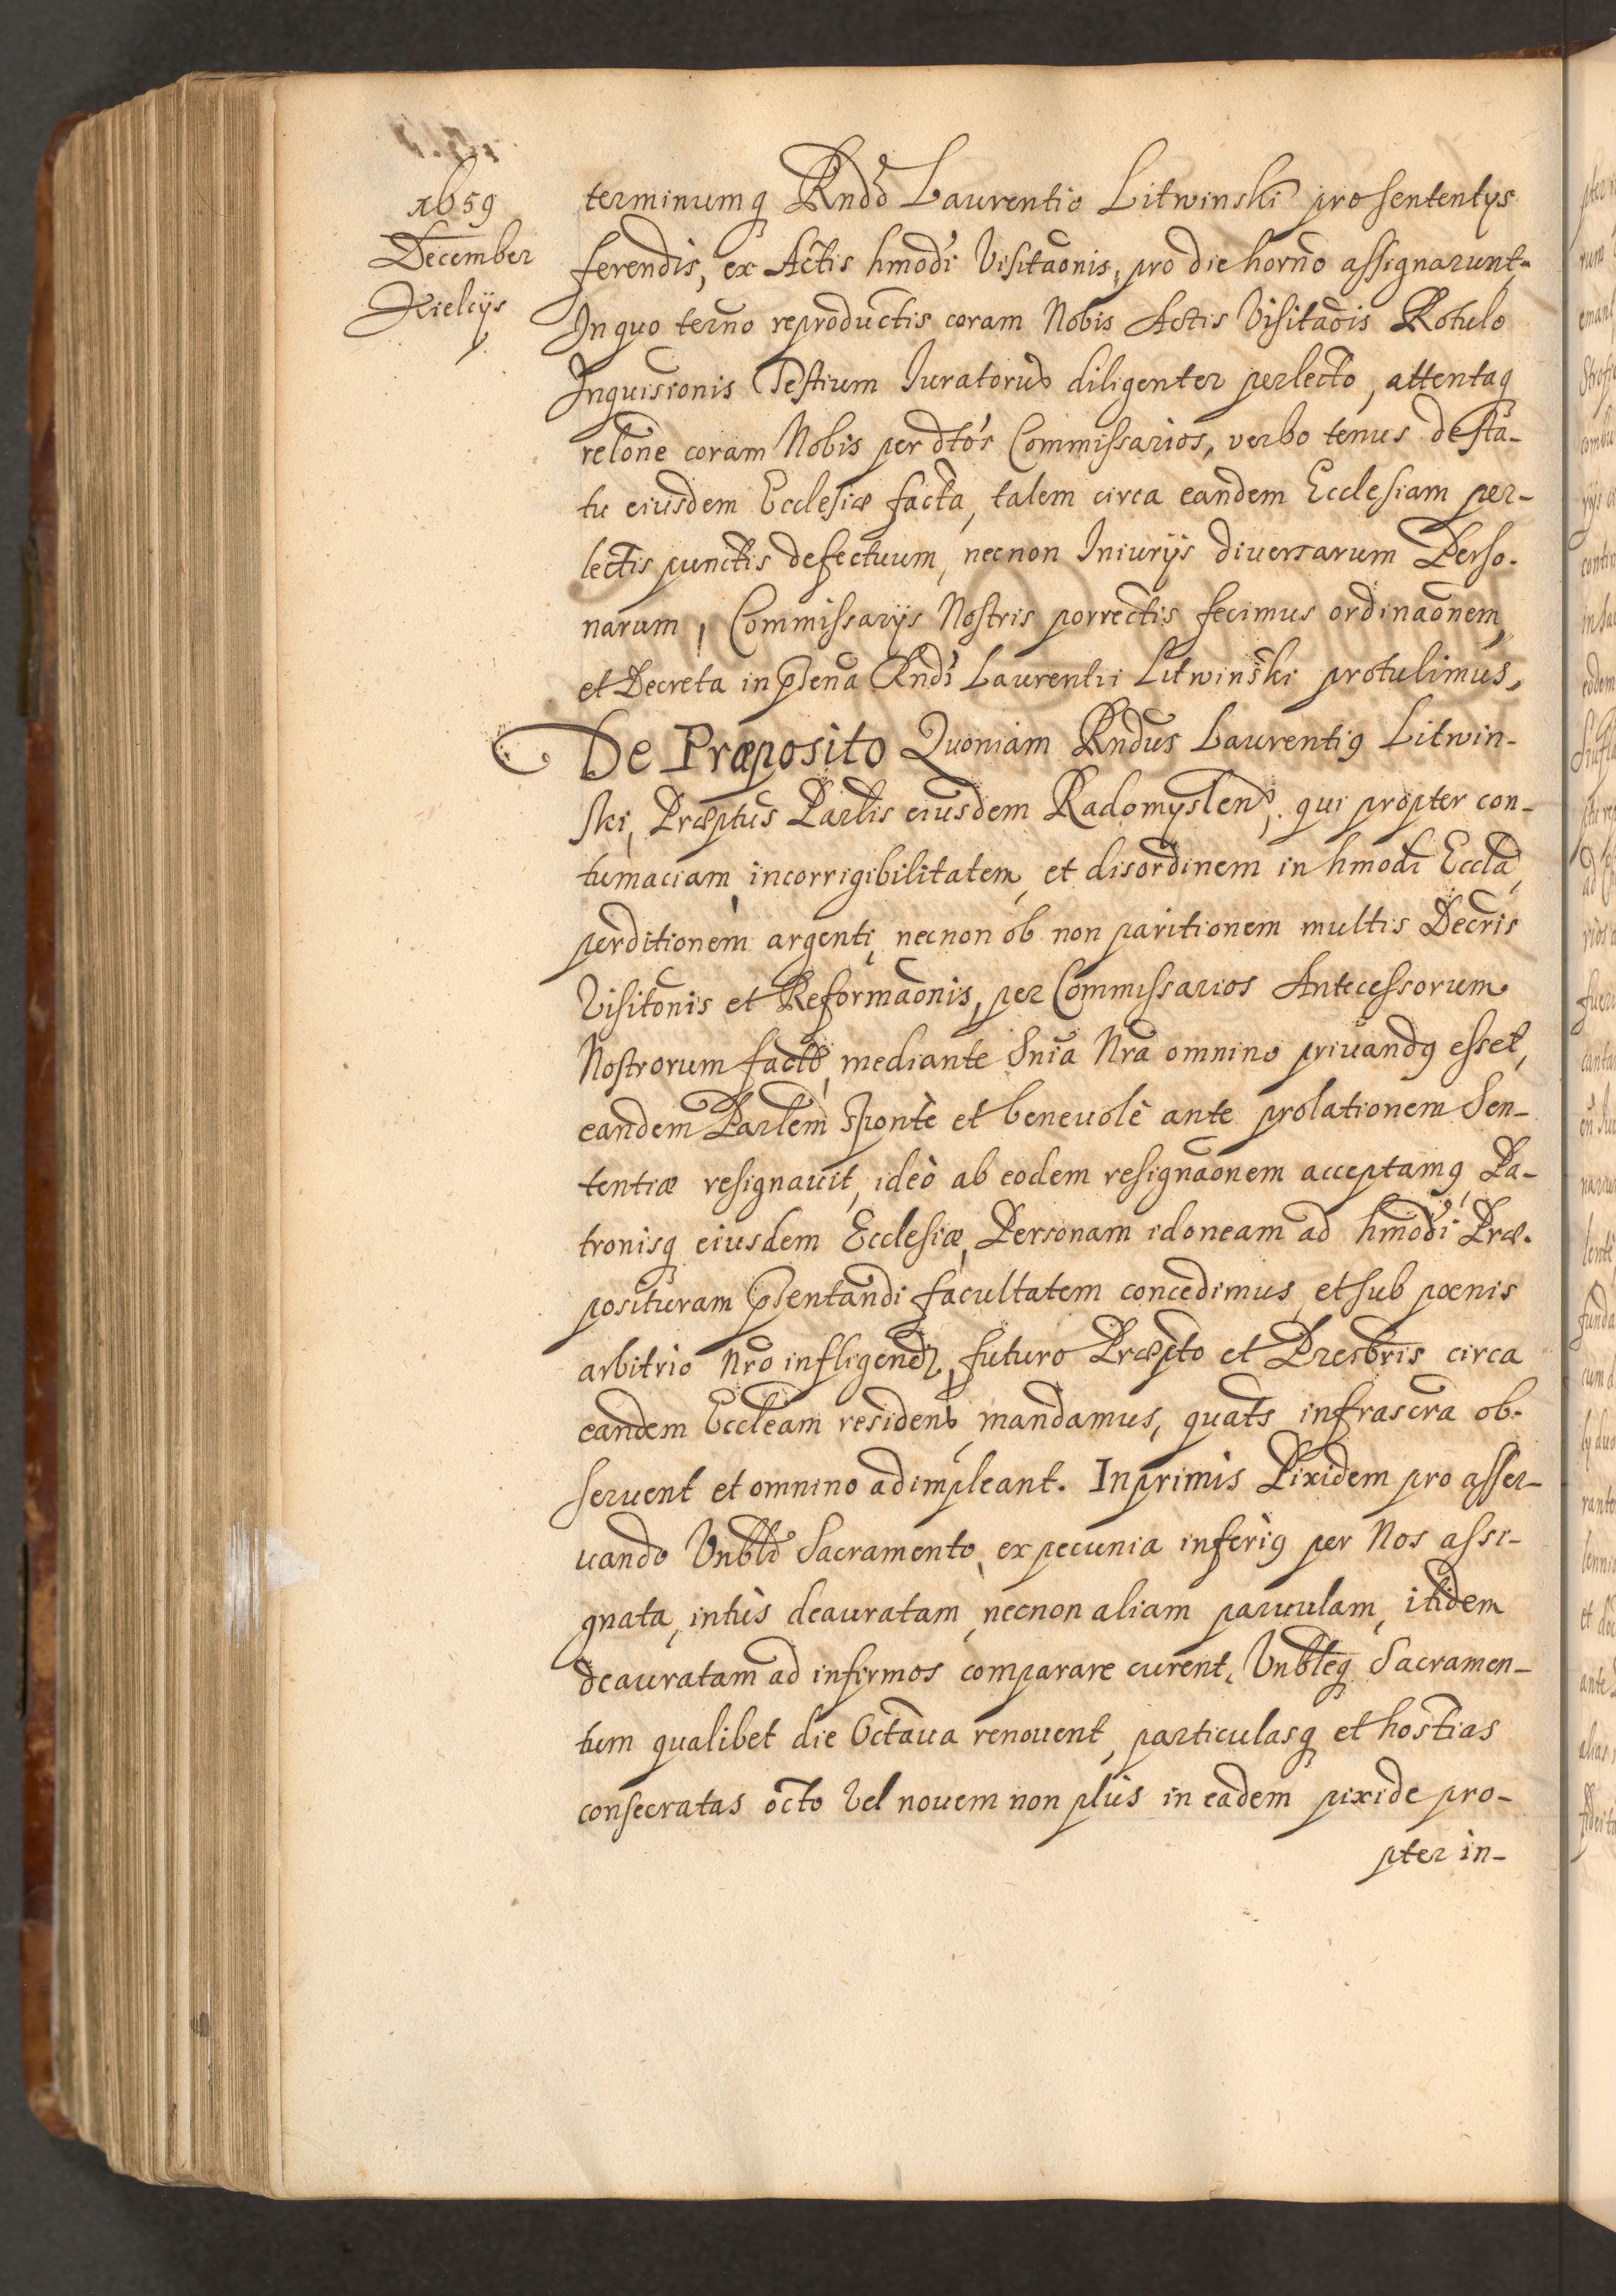 1659
December
Kielcijs
terminumq Rndo Laurentio Litwinski pro sententys
ferendis, ex Actis hmodi Visitaonis, pro die horno assignarunt.
In quo terno reproductis coram Nobis Actis Visitaois Rotulo
Inquisionis Testium Iuratorum diligenter perlecto, attentaq
relone coram Nobis per dtos Commissarios, verbo tenus de sta-
tu eiusdem Ecclesiæ facta, talem circa eandem Ecclesiam per-
lectis punctis defectuum, necnon Iniurijs diversarum Perso-
narum, Commissarijs Nostris porrectis fecimus ordinaonem,
et Decreta in psena Rndi Laurentii Litwinski protulimus.
De Præposito Quoniam Rndus Laurentig Litwin-
ski, Præptus Parlis eiusdem Radomyslen, qui propter con-
tumaciam, incorrigibilitatem, et disordinem in hmodi Eccla,
perditionem argenti, necnon ob non paritionem multis Decris
Visitonis et Reformaonis, per Commissarios Antecessorum
Nostrorum factæ, mediante Snia Nra omnino priuandg esset,
eandem Parlem sponte et beneuole ante prolationem Sen-
tentiæ resignauit, ideò ab eodem resignaonem acceptamg, Pa-
tronisq eiusdem Ecclesiæ, Personam idoneam ad hmodi Præ-
posituram psentandi facultatem concedimus, et sub pœnis
arbitrio Nro infligend, futuro Præpto et Presbris circa
eandem Eccleam residen, mandamus, quats infrascra ob-
seruent et omnino adimpleant. Inprimis Pixidem pro asser-
uando Vnbli Sacramento, ex pecunia inferig per Nos assi-
gnata, intùs deauratam, necnon aliam paruulam, itidem
deauratam ad infirmos comparare curent, Vnbleq Sacramen-
tum qualibet die Octaua renouent, particulasq et hostias
consecratas octo vel nouem non plùs in eadem pixide pro-
pter in-